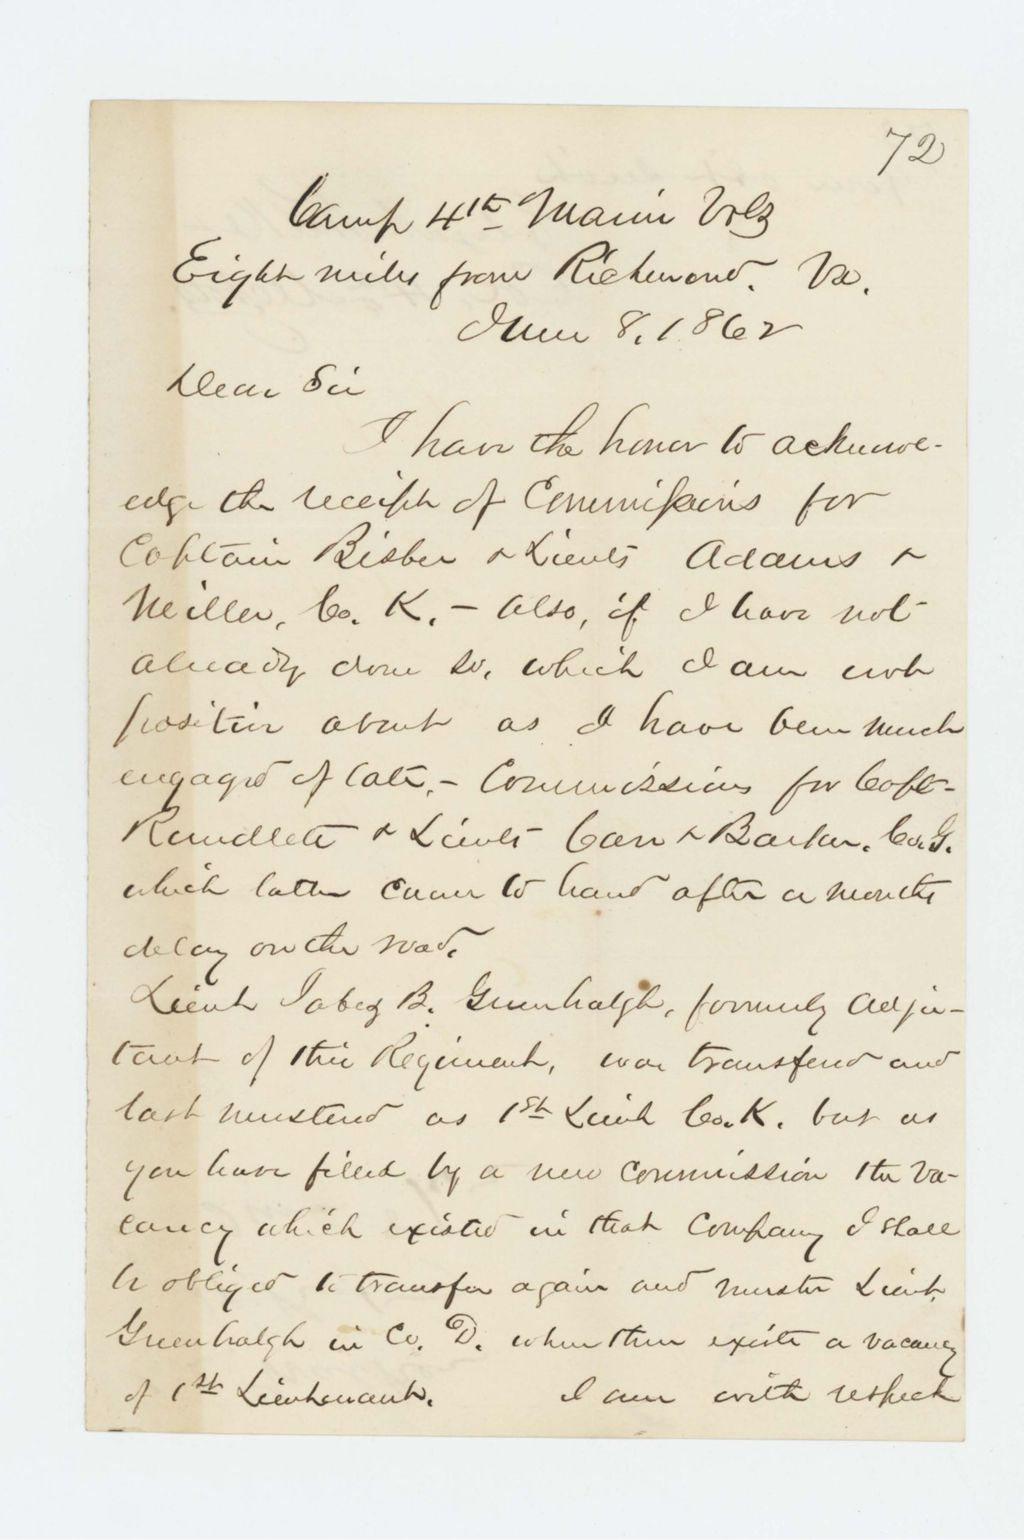 72
Camp 4th Maine Vols
Eight miles from Richmond. Va.
June 8, 1862
Dear Sir
I have the honor to acknowl-
edge the receipt of Commissions for
Captain Bisbee & Lieuts Adams &
Miller, Co. K. – Also, if I have not
already done so, which I am not
positive about as I have been much
engaged of late, – Commissions for Capt-
Rundlett & Lieuts Carr & Barker. Co. G.
which latter came to hand after a months
delay on the road.
Lieut Jabez B. Greenhalgh, formerly Adju-
tant of this Regiment, was transfered and
last mustered as 1st Lieut Co. K. but as
you have filled by a new Commission the va-
cancy which existed in that Company I shall
be obliged to transfer again and muster Lieut
Greenhalgh in Co. D. where there exists a vacancy
of 1st Lieutenant. I am with respect